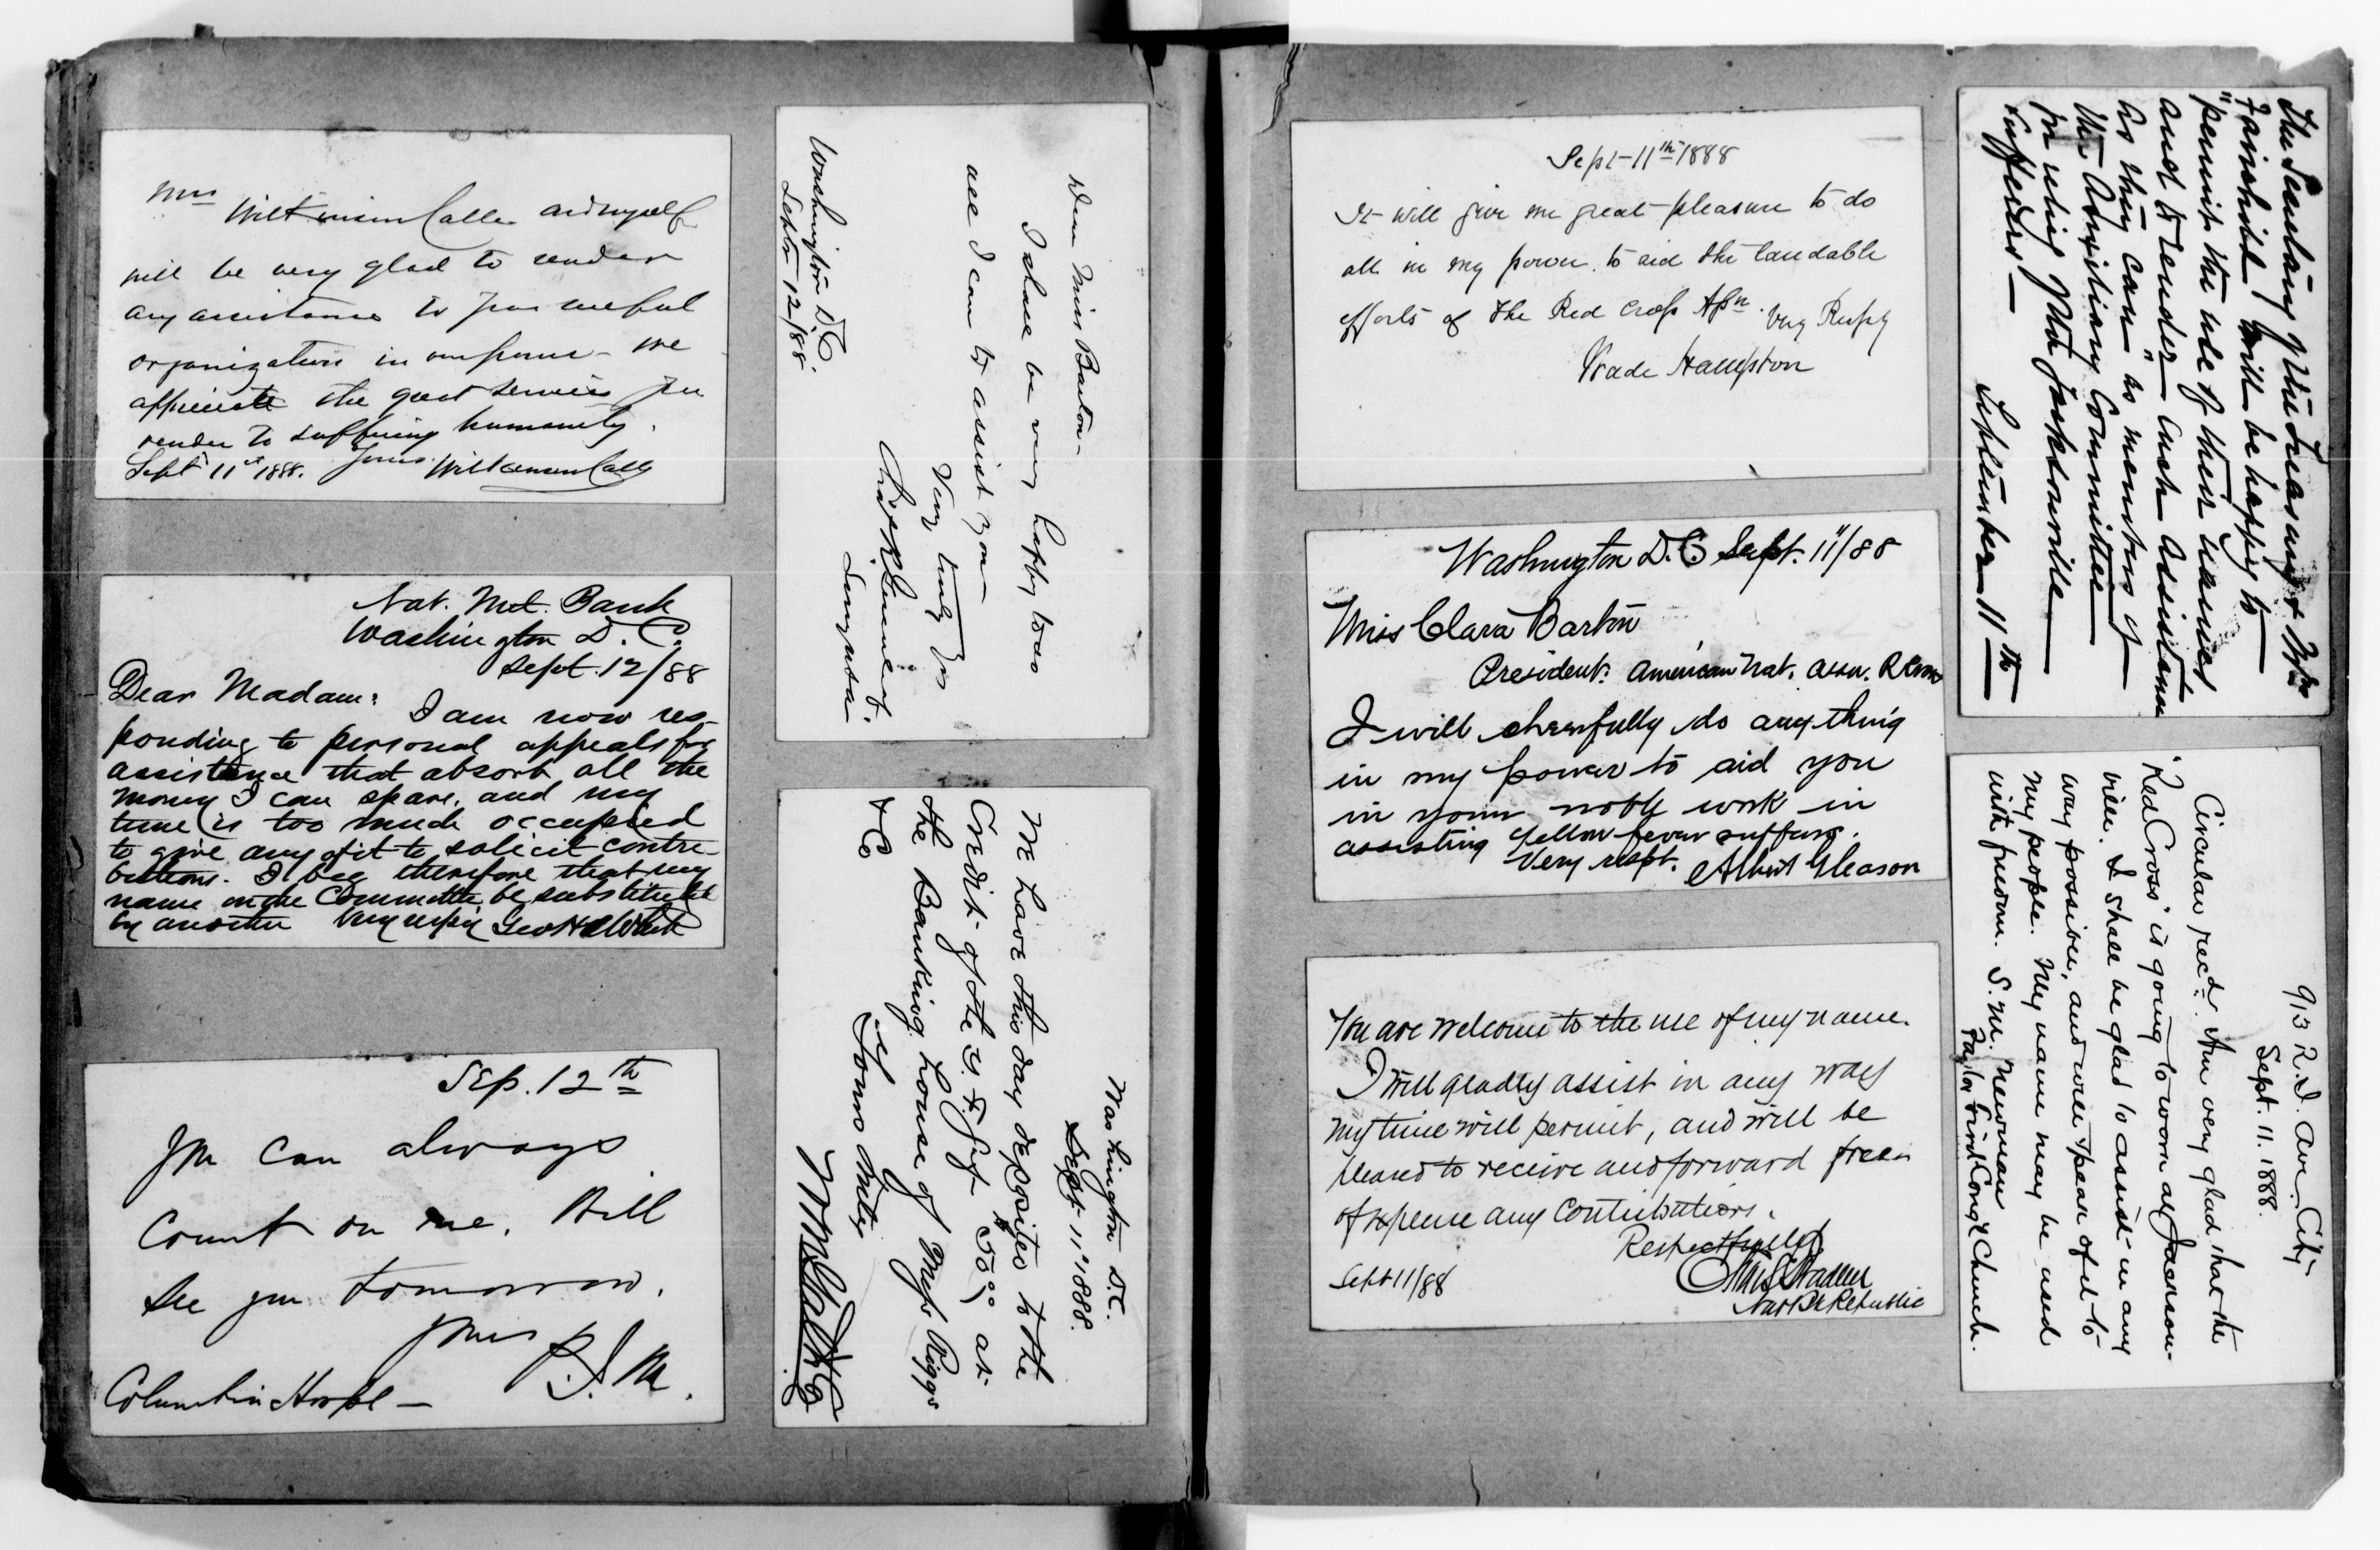 Mrs Wilkinson Call and myself
will be very glad to render
any assistance to your useful
organization in our power - We
appreciate the good services you
render to suffering humanity.
Sept 11th 1888. Yours Wilkinson Call
Nat. Met. Bank
Washington D. C.
Sept. 12/88
Dear Madam: I am now res-
ponding to personal appeals for
assistance that absorb all the
money I can spare, and my
time is too much occupied
to give any of it to solicit contri-
butions. I beg therefore that my
name on the Committee be substituted
by another Very resp'y Geo H B White
Sep. 12th
You can always
Count on me. Will
see you tomorrow.
Yours P. J. M.
Columbia Hospl -
Dear Miss Barton -
I shall be very happy to do
all I can to assist you -
Very truly yrs
Washington D.C.
Septr 12/88.
Washington D.C.
Sept. 11" 1888.
We have this day deposited to the
Credit of the
the Banking House of Messrs Riggs
& Co
Yours truly
Sept - 11th 1888
It will give me great pleasure to do
all in my power to aid the laudable
efforts of the Red Cross Assn. Very Respy
Wade Hampton
Washington D.C. Sept. 11/88
Miss Clara Barton
President: American Nat. Assn. R Cross
I will cheerfully do any thing
in my power to aid you
in your noble work in
assisting yellow fever suffers.
Very respt. Albert Gleason
You are welcome to the use of my name.
I will gladly assist in any way
my time will permit, and will be
pleased to receive and forward free
of expense any Contributions.
Respectfully
Sept 11/88
Nat Bk Republic
The Secretary of the Treasury & Mrs
Fairchild will be happy to
"permit the use of their names
and to render such assistance
as they can" as members of
the Auxiliary Committee
in relief of the Jacksonville
sufferers -
September 11th
913 R.I. Ave. City
Sept. 11. 1888.
Circular rec'd. Am very glad that the
"Red Cross" is going to work at Jackson-
ville. I shall be glad to assist in any
way possible, and will speak of it to
my people. My name may be used
with freedom. S. M. Newman
Pastor First Cong'l Church.